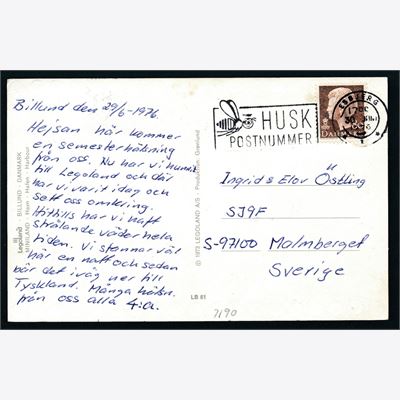 Billund den 29/6-1976.
Hejsan här kommer
en semesterhälsning
från oss. Nu har vi hunnit
till Legoland och där
har vi varit idag och
sett oss omkring.
Hittills har vi haft
strålande väder hela
tiden. Vi stannar väl
här en natt och sedan
bär det iväg ner till
Tyskland. Många hälsn.
från oss alla 4:a.
Legoland - BILLUND - DANMARK
MINILAND
© 1973 LEGOLAND A/S - Production: Grønlund
LB 61
HUSK
POSTNUMMER
DANMARK
Ingrid & Elov Östling
SJ9F
S-97100 Malmberget
Sverige
7190